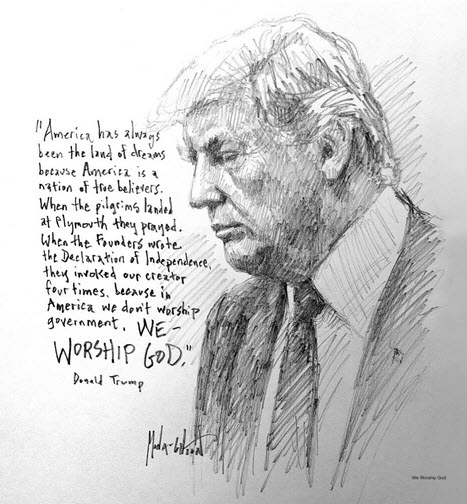 "America has always
been the land of dreams
because America is a
nation of true believers.
When the pilgrims landed
at Plymouth they prayed.
When the Founders wrote
the Declaration of Independence,
they invoked our creator
four times, because in
America we don't worship
government, WE-
WORSHIP GOD."
Donald Trump
We Worship God